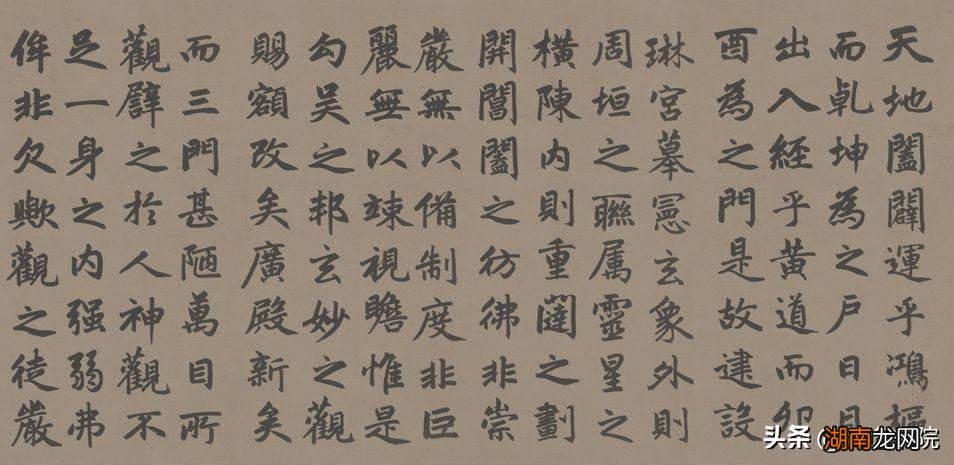 天地闔闢運乎鴻樞
而乹坤為之户日月
出入經乎黄道而卯
酉為之門是故建設
琳宮摹憲玄象外則
周垣之聯属靈星之
横陳内則重闥之劃
開閶闔之彷彿非崇
嚴無以備制度非巨
麗無以竦視瞻惟是
勾吴之邦玄妙之觀
賜額改矣廣殿新矣
而三門甚陋萬目所
觀譬之於人神觀不
足一身之内强弱弗
侔非欠歟觀之徒嚴
头条 湖南龙网院